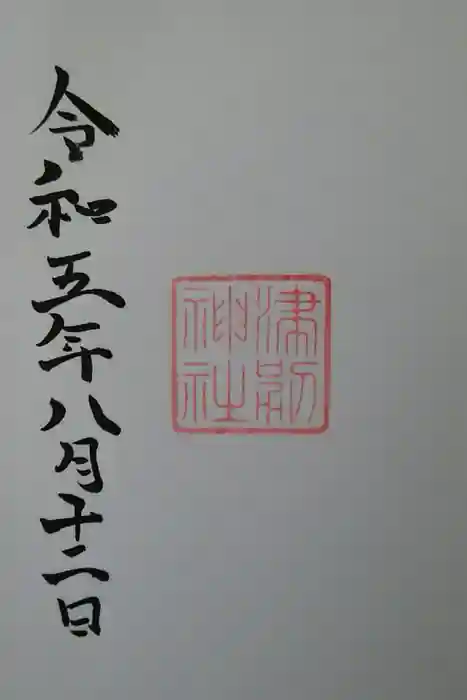 津別
神社
令和五年八月十二日